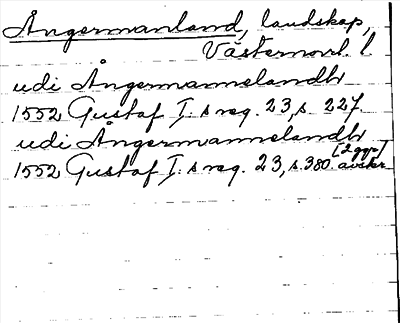 Ångermanland, landskap,
Västernorrl. l
udi Ångermannelandh
1552 Gustaf I:s reg. 23, s. 227.
udi Ångermannelandh
1552 Gustaf I:s reg. 23, s. 380. (2 ggr)
avskr